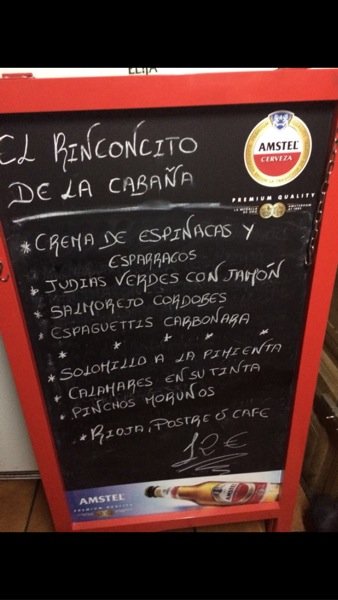 ELIJA
EL RINCONCITO
DE LA CABAÑA
AMSTEL
CERVEZA
PREMIUM QUALITY
* CREMA DE ESPINACAS Y
ESPARRAGOS
* JUDIAS VERDES CON JAMÓN
* SALMOREJO CORDOBES
* ESPAGUETTIS CARBONARA
* * * * *
* SOLOMILLO A LA PIMIENTA
* CALAMARES EN SU TINTA
* PINCHOS MORUÑOS
* RIOJA, POSTRE Ó CAFE
12 €
AMSTEL
PREMIUM QUALITY
AMSTEL